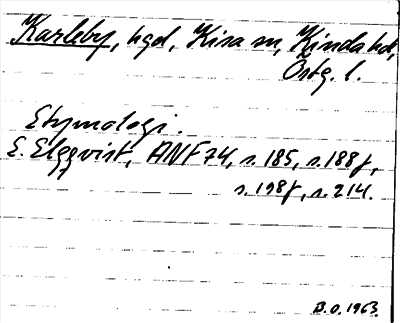 Karleby, hgd, Kisa sn, Kinda hd,
Östg. l.
Etymologi.
E. Elgqvist, ANF 74, s. 185, s. 188f,
s. 198f, s. 214.
B.O. 1963.